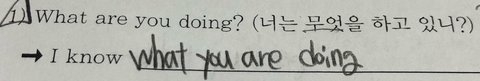 1) What are you doing? (너는 무엇을 하고 있니?)
→ I know what you are doing